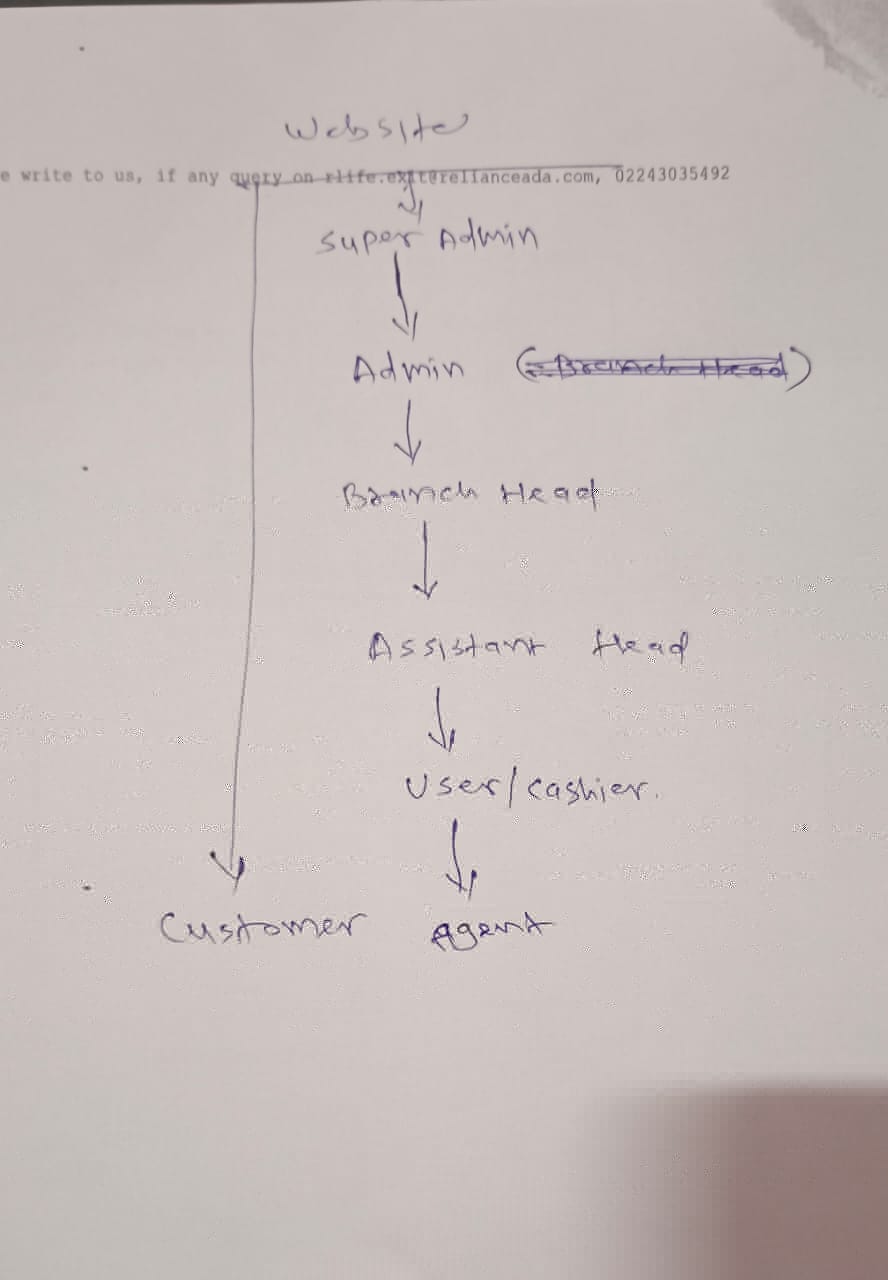 Website
e write to us, if any query on rlife.exit@relianceada.com, 02243035492
Super Admin
Admin (Branch Head)
Branch Head
Assistant Head
User/cashier.
Customer Agent